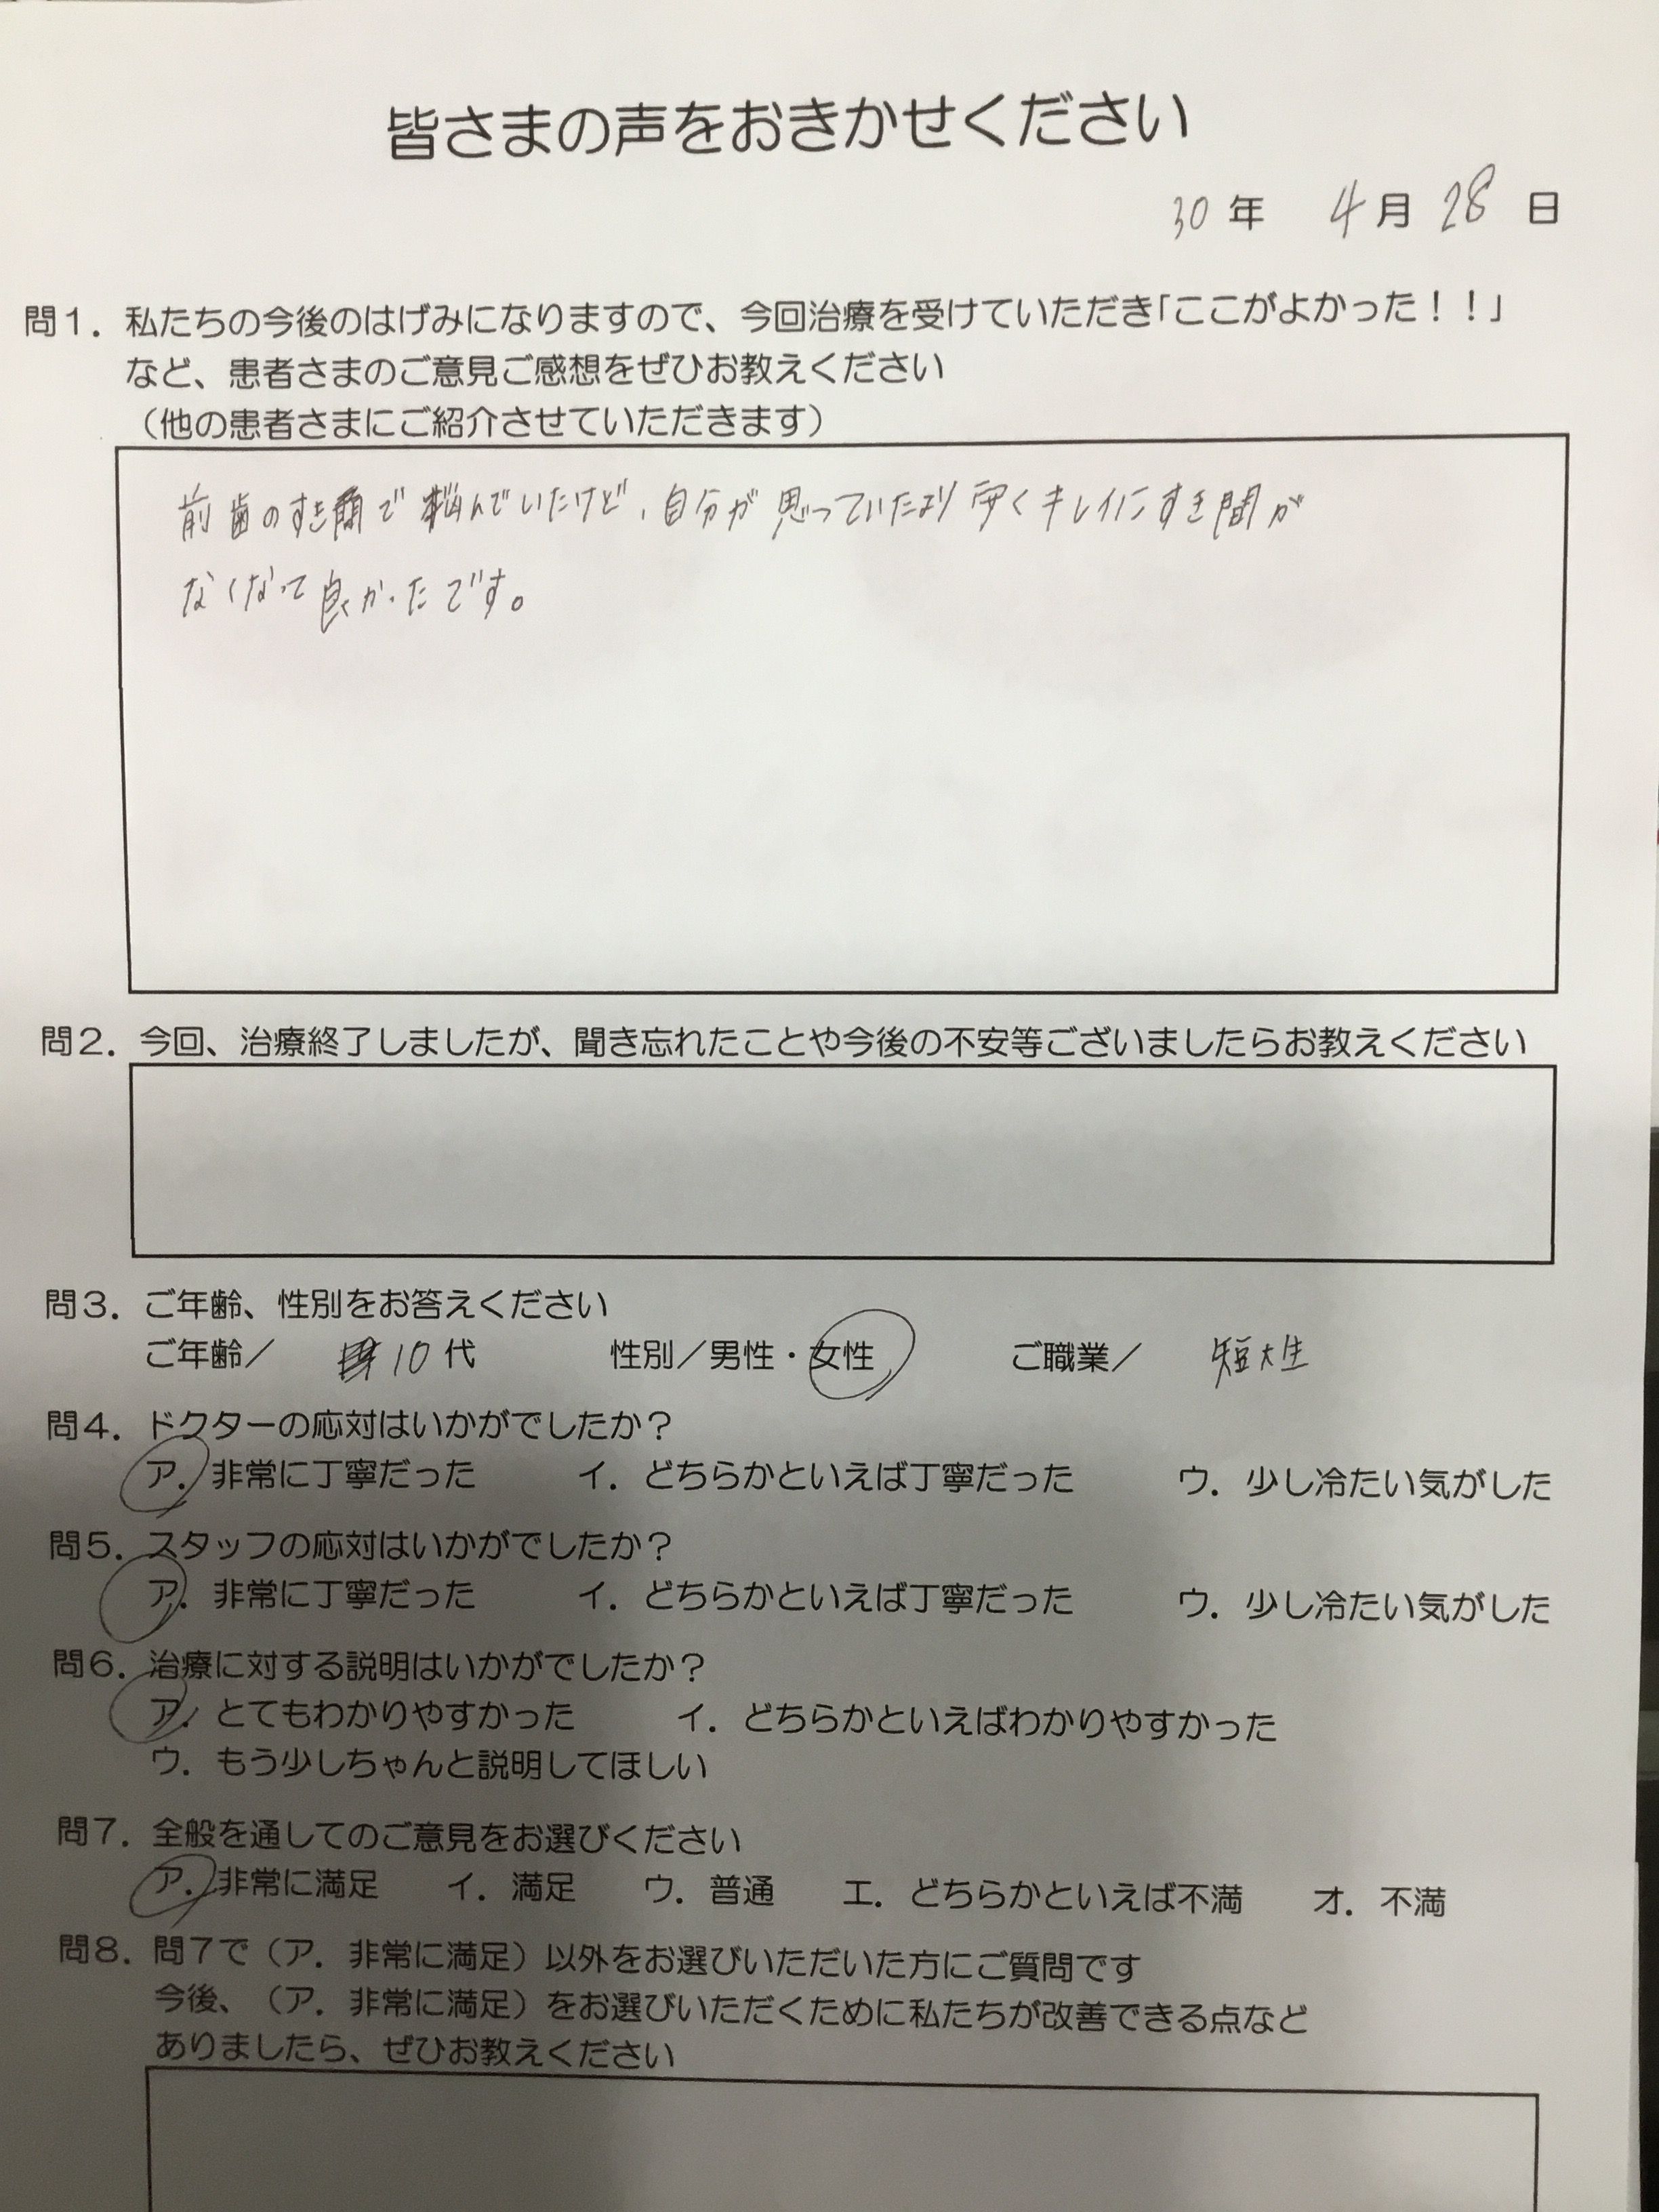 皆さまの声をおきかせください
30年 4月28日
問1．私たちの今後のはげみになりますので、今回治療を受けていただき「ここがよかった！！」
など、患者さまのご意見ご感想をぜひお教えください
（他の患者さまにご紹介させていただきます）
前歯のすき間で悩んでいたけど、自分が思っていたより安くキレイにすき間が
なくなって良かったです。
問2．今回、治療終了しましたが、聞き忘れたことや今後の不安等ございましたらお教えください
問3．ご年齢、性別をお答えください
ご年齢／ 10代 性別／男性・女性 ご職業／ 短大生
問4．ドクターの応対はいかがでしたか？
ア．非常に丁寧だった イ．どちらかといえば丁寧だった ウ．少し冷たい気がした
問5．スタッフの応対はいかがでしたか？
ア．非常に丁寧だった イ．どちらかといえば丁寧だった ウ．少し冷たい気がした
問6．治療に対する説明はいかがでしたか？
ア．とてもわかりやすかった イ．どちらかといえばわかりやすかった
ウ．もう少しちゃんと説明してほしい
問7．全般を通してのご意見をお選びください
ア．非常に満足 イ．満足 ウ．普通 エ．どちらかといえば不満 オ．不満
問8．問7で（ア．非常に満足）以外をお選びいただいた方にご質問です
今後、（ア．非常に満足）をお選びいただくために私たちが改善できる点など
ありましたら、ぜひお教えください